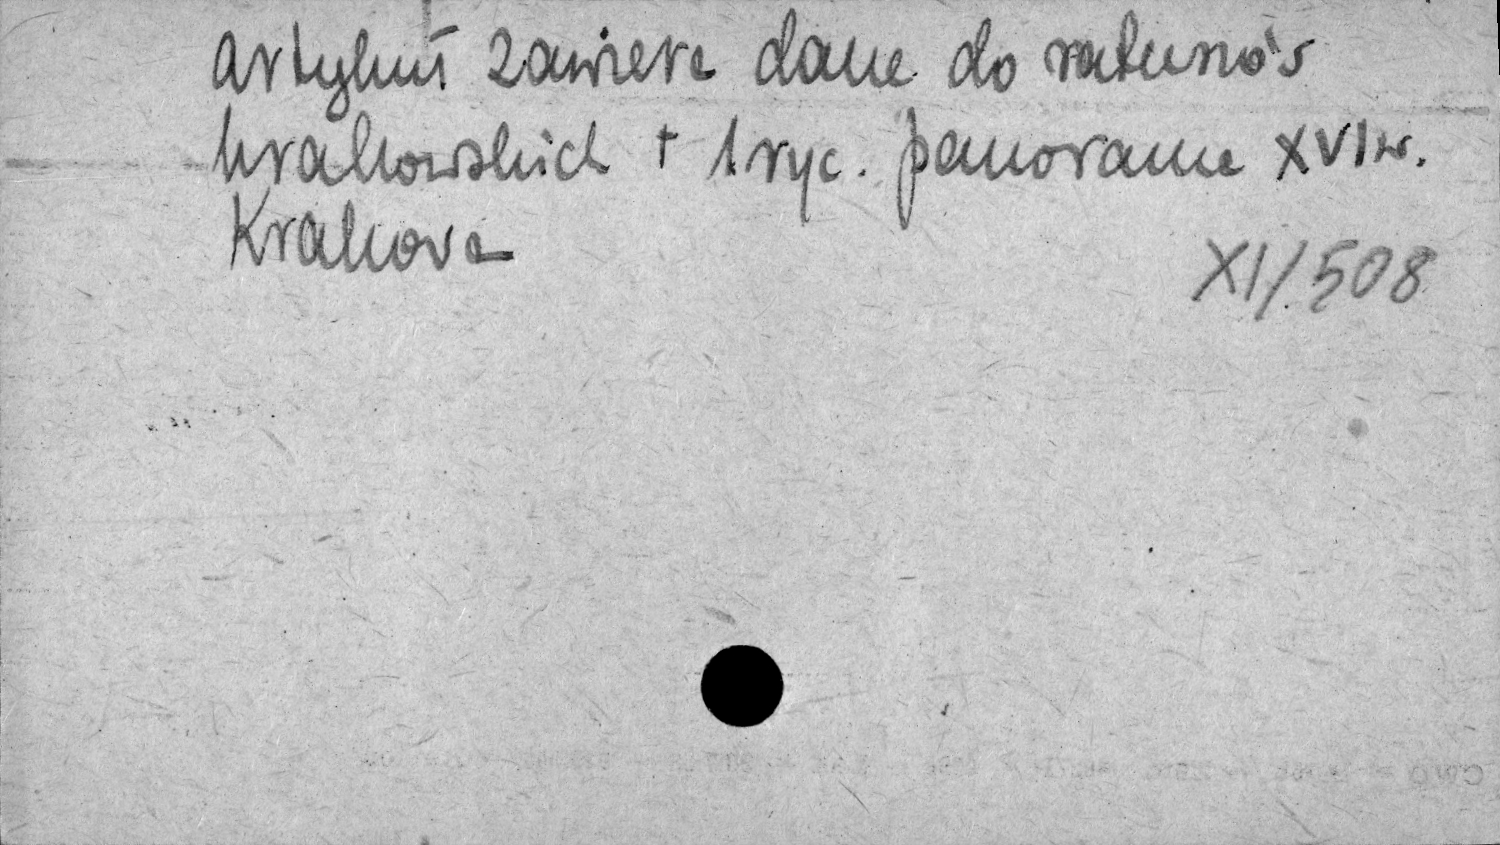 artykuł zawiera dane do ratuszów
krakowskich + 1 ryc. panorama XVI w.
Krakowa
XI/508